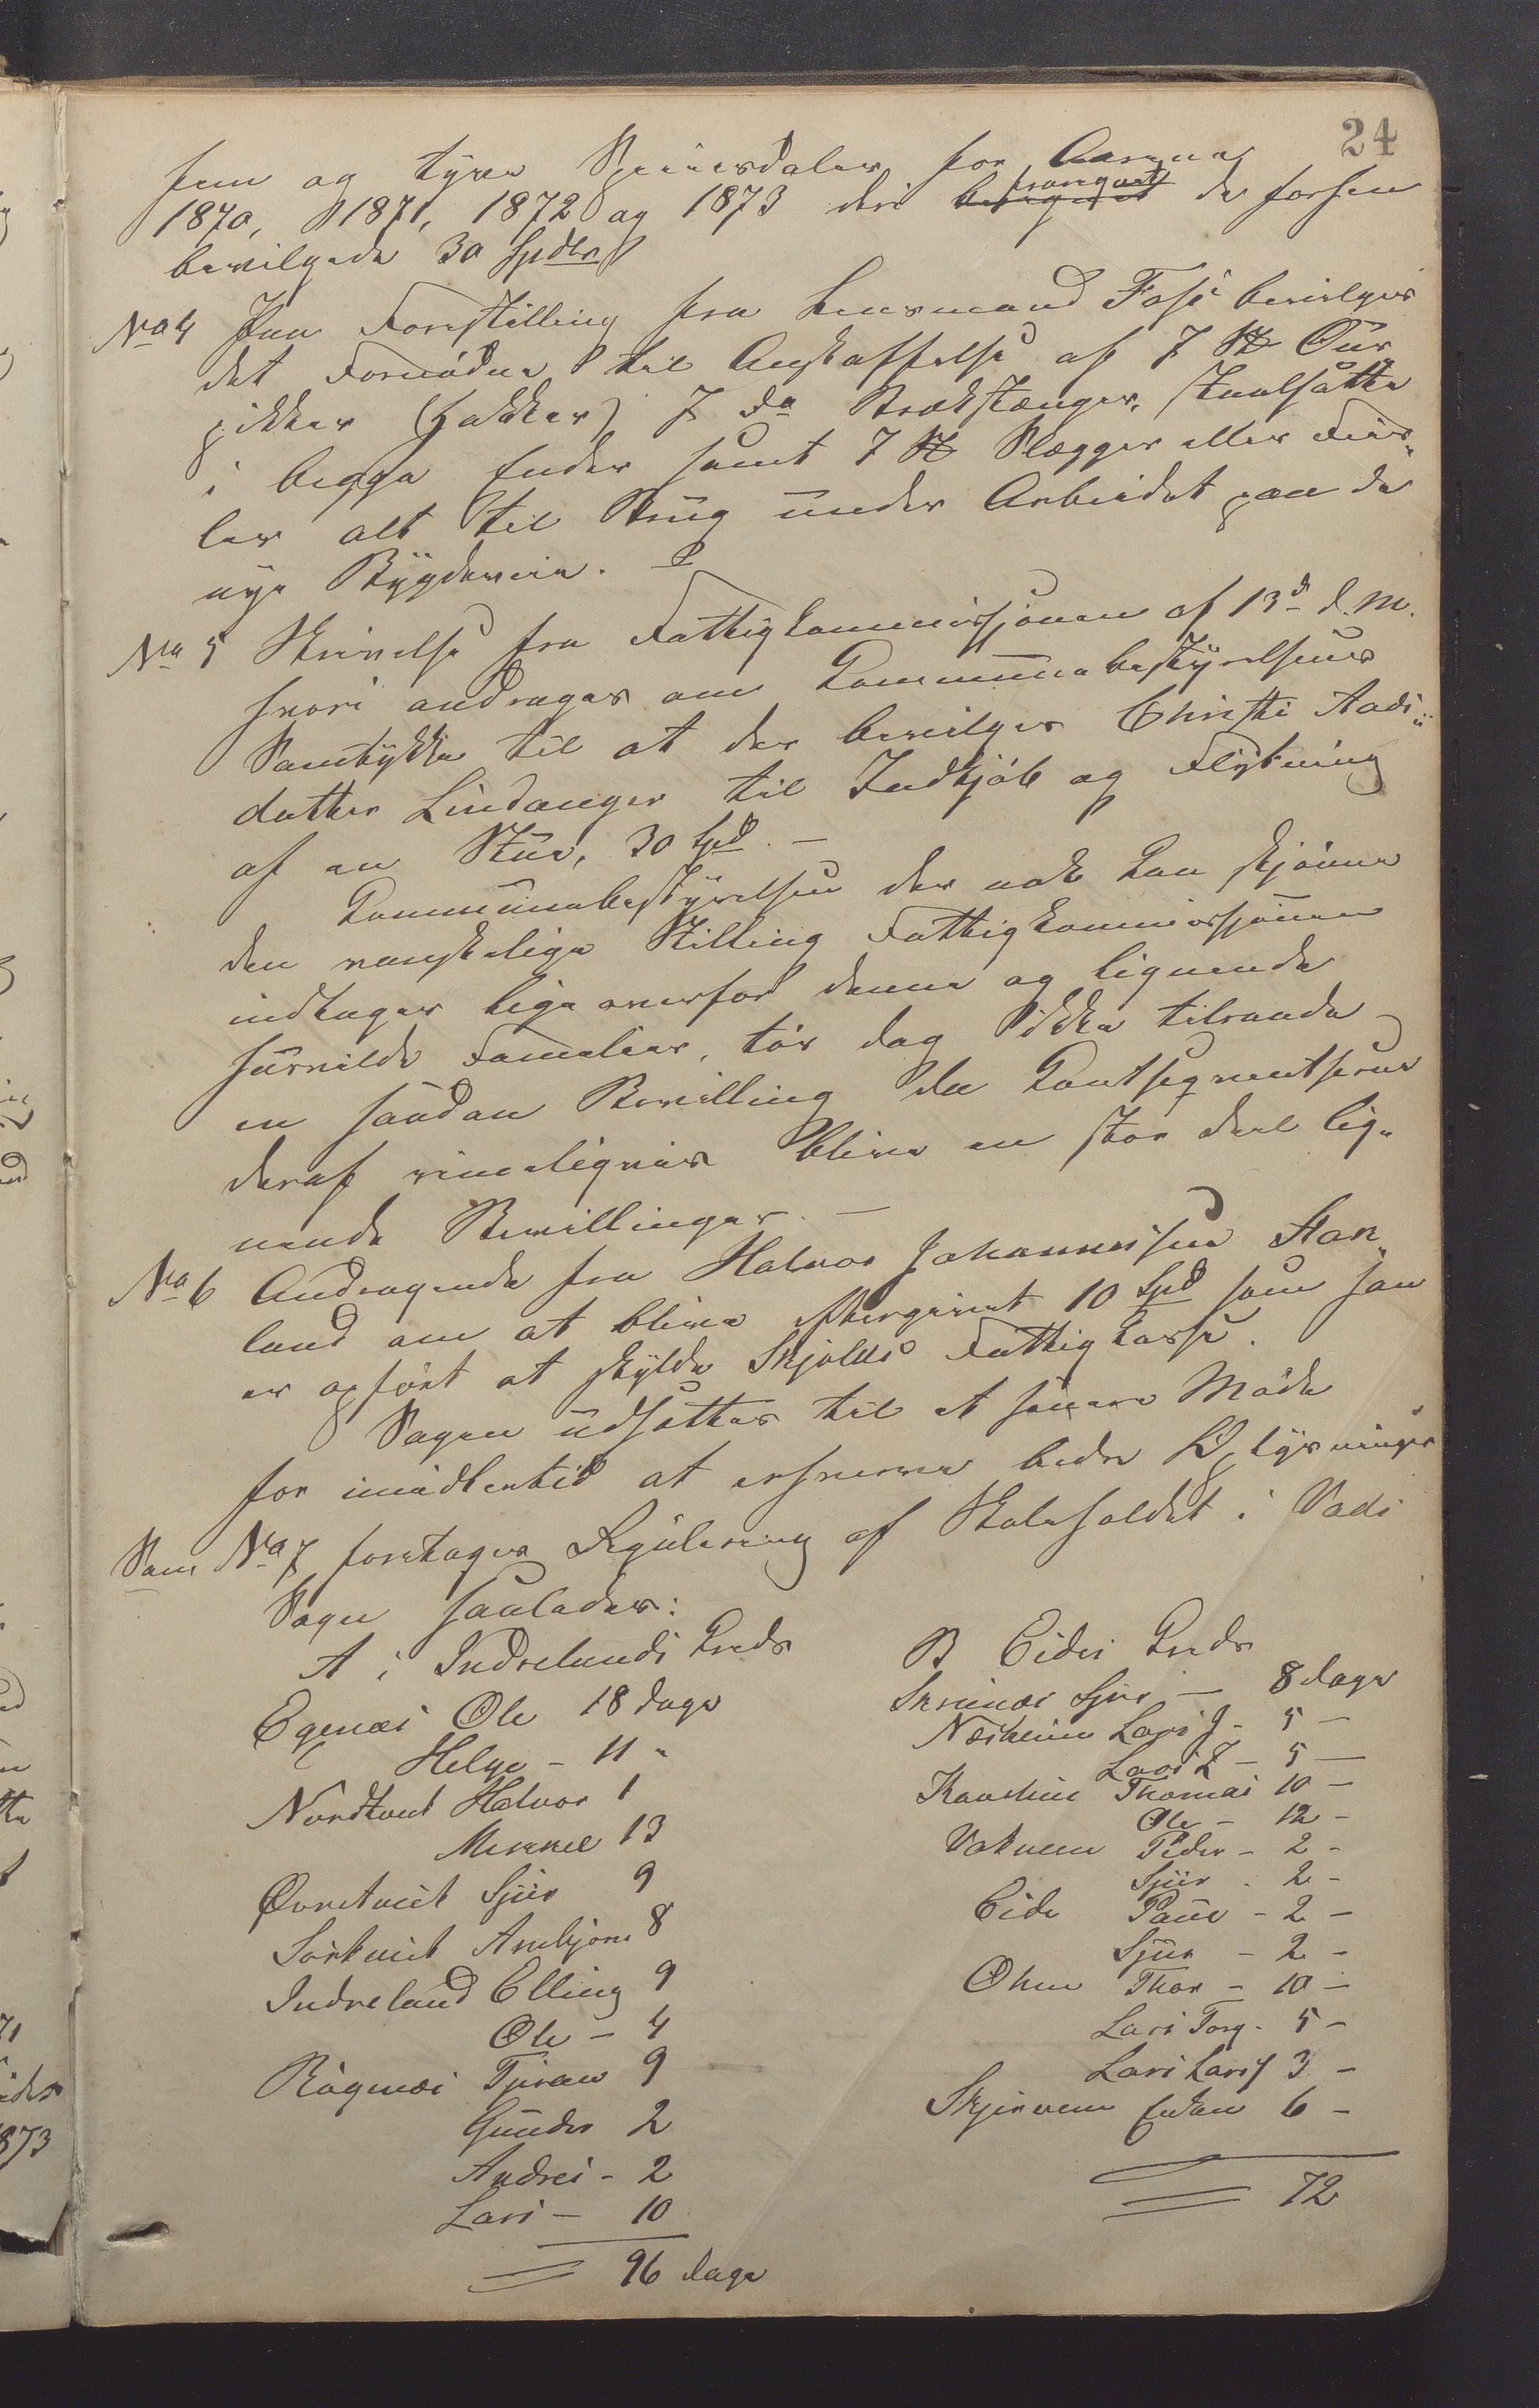 24
fem og tyve Speciesdaler for Aarene
1870, 1871, 1872 og 1873 deri fraregnet de forhen
bevilgede 30 Spdlr
No 4 Paa Forestilling fra Lensmand Fose bevilges
det Fornødne til Anskaffelse af 7 St Øur
pikker (Hakker) 7 do Brækstænger, staalsatte
i begge Ender samt 7 St Slægger eller Feis-
ler alt til Brug under Arbeidet paa de
nye Bygdeveie.
No 5 Skrivelse fra Fattigkommissjonen af 13d d.M.
hvori andrages om Kommunebestyrelsens
Samtykke til at der bevilges Christi Aads-
datter Lindanger til Indkjøb og Flytning
af en Stue, 30 Spd. —
Kommunebestyrelsen der nok kan skjønne
den vanskelige Stilling Fattigkommissjonen
indtager lige overfor denne og lignende
husvilde Familier, tør dog ikke tilraade
en saadan Bevilling da Konseqventserne
deraf rimeligvis blive en stor deel lig-
nende Bevillinger. —
No 6 Andragende fra Halvor Johannessen Aar-
land om at blive eftergivet 10 Spd som han
er opført at skylde Skjolds Fattigkasse.
Sagen udsættes til et senere Møde
for imidlertid at erhverve bedre Oplysninger
Som No 7 foretages Regulering af Skoleholdet i Vads
Sogn saaledes:
A i Indrelands Kreds
Egenæs Ole 18 dage
Helge – 11 "
Nordtveit Halvor 1
Mikkel 13
Øvretveit Sjur 9
Sørtveit Arnbjørn 8
Indreland Elling 9
Ole – 4
Rognæs Tjeran 9
Gunder 2
Andres – 2
Lars – 10
96 dage
B Eides Kreds
Skrinæs Sjur — 8 dage
Næsheim Lars J – 5 —
Lars L – 5 —
Kavshus Thomas 10 –
Ole – 12 –
Vatnem Peder – 2 –
Sjur – 2 –
Eide Paul – 2 –
Sjur – 2 –
Ohm Thor – 10 –
Lars Torg. 5 –
Lars Larss 3 –
Skjervem Enken 6 –
72